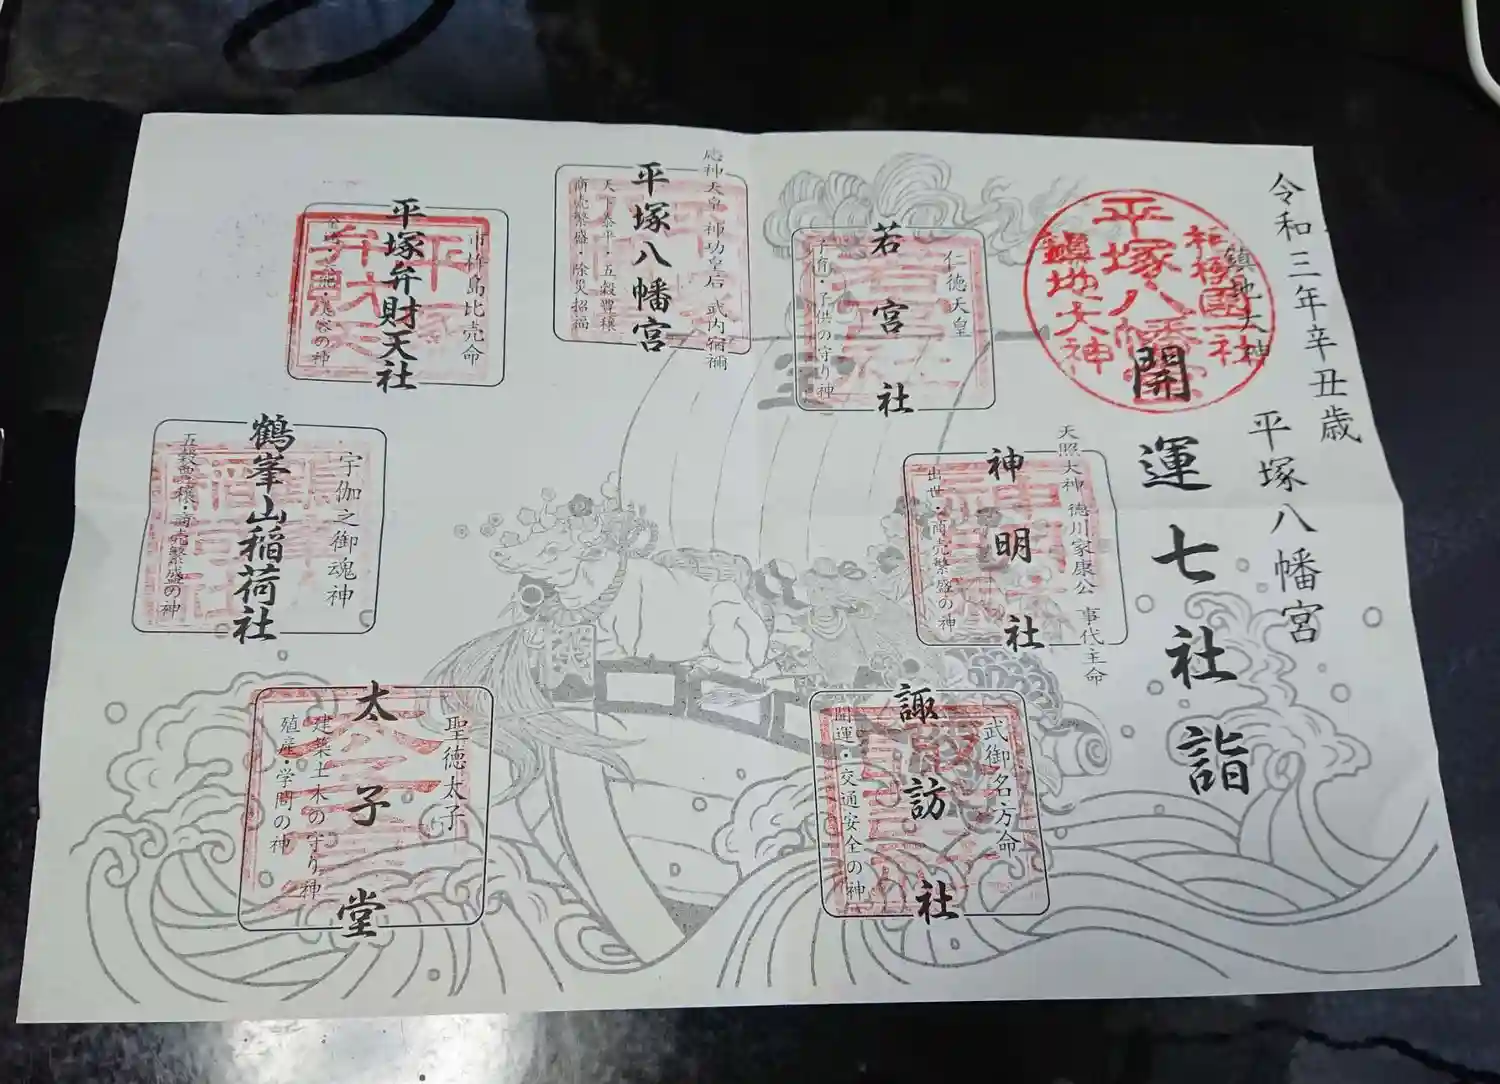 令和三年辛丑歳
平塚八幡宮
鎮地大神
開運七社詣
相模國一社
平塚八幡宮
鎮地大神
若宮社
仁徳天皇
子育・子供の守り神
神明社
天照大神 徳川家康公 事代主命
出世・商売繁盛の神
諏訪社
武御名方命
開運・交通安全の神
応神天皇 神功皇后 武内宿禰
平塚八幡宮
天下泰平・五穀豊穣
商売繁盛・除災招福
市杵島比売命
平塚弁財天社
宇伽之御魂神
鶴峯山稲荷社
五穀豊穣・商売繁盛の神
聖徳太子
太子堂
建築土木の守り神
殖産・学問の神